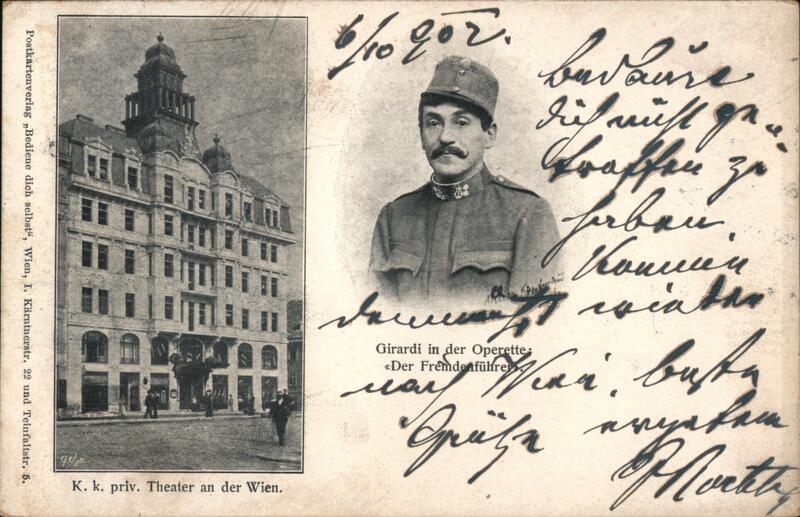 Postkartenverlag „Bediene dich selbst“, Wien, I. Kärntnerstr. 22 und Teinfaltstr. 5.
6/10 902.
bedaure
dich nicht ge-
troffen zu
haben.
Komme
demnächst wieder
nach Wien, beste
Grüße ergebem
Girardi in der Operette:
«Der Fremdenführer».
K. k. priv. Theater an der Wien.